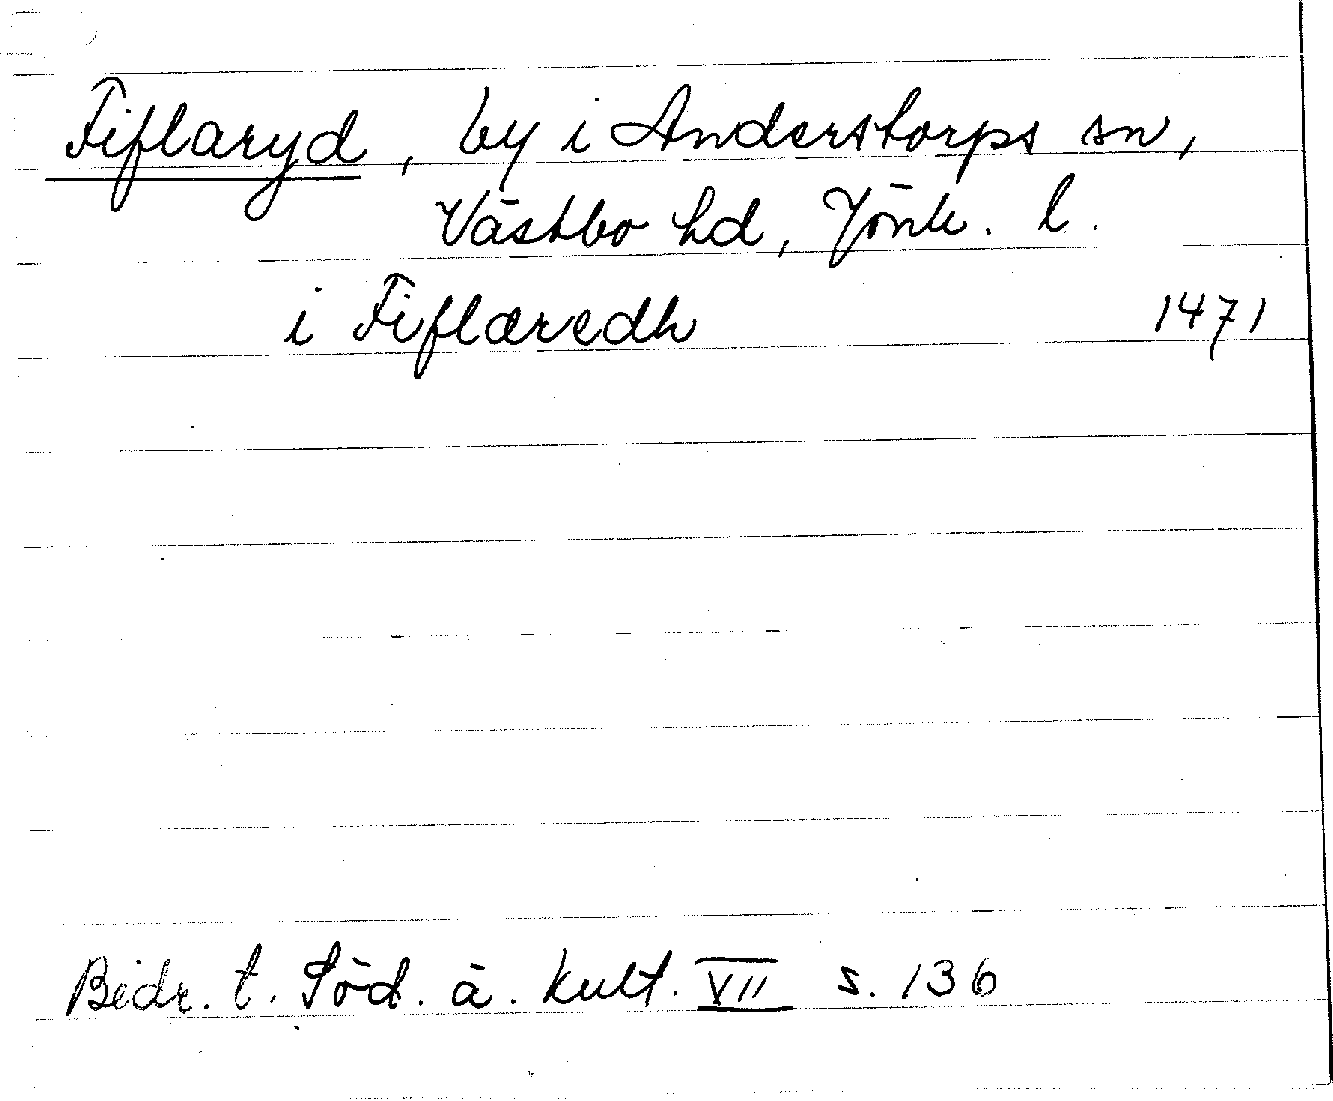 Fiflaryd, by i Anderstorps sn,
Västbo hd, Jönk. l.
i Fiflæredh 1471
Bidr. t. Söd. ä. kult. VII s. 136